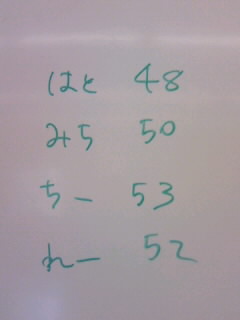 はと 48
みち 50
ちー 53
れー 52